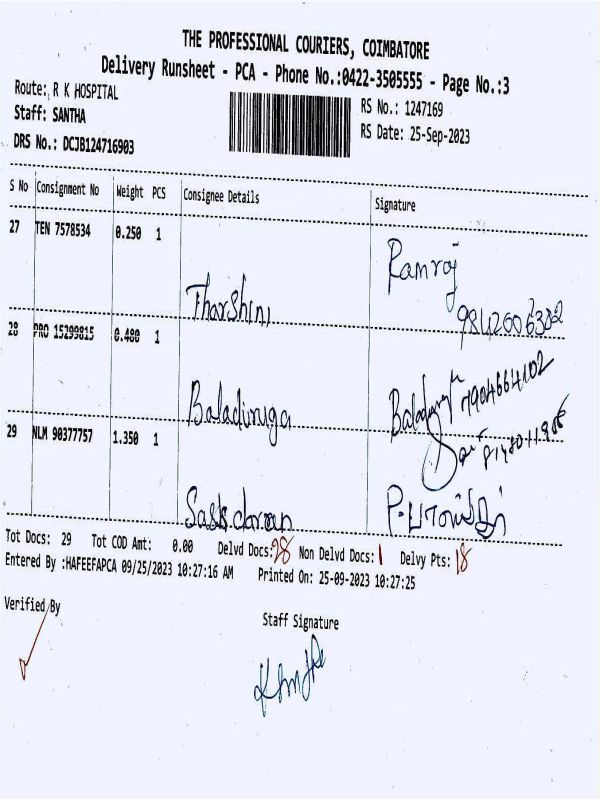 THE PROFESSIONAL COURIERS, COIMBATORE
Delivery Runsheet - PCA - Phone No.:0422-3505555 - Page No.:3
Route: R K HOSPITAL
RS No.: 1247169
Staff: SANTHA
RS Date: 25-Sep-2023
DRS No.: DCJB124716903
S No Consignment No Weight PCS Consignee Details Signature
27 TEN 7578534 0.250 1
Ramraj
Tharshini
9842006302
28 PRO 15299815 0.480 1
7904664102
Baladiruga
29 NLM 90377757 1.350 1
Tot Docs: 29 Tot COD Amt: 0.00 Delvd Docs:28 Non Delvd Docs:1 Delvy Pts: 18
Entered By :HAFEEFAPCA 09/25/2023 10:27:16 AM Printed On: 25-09-2023 10:27:25
Verified By
Staff Signature